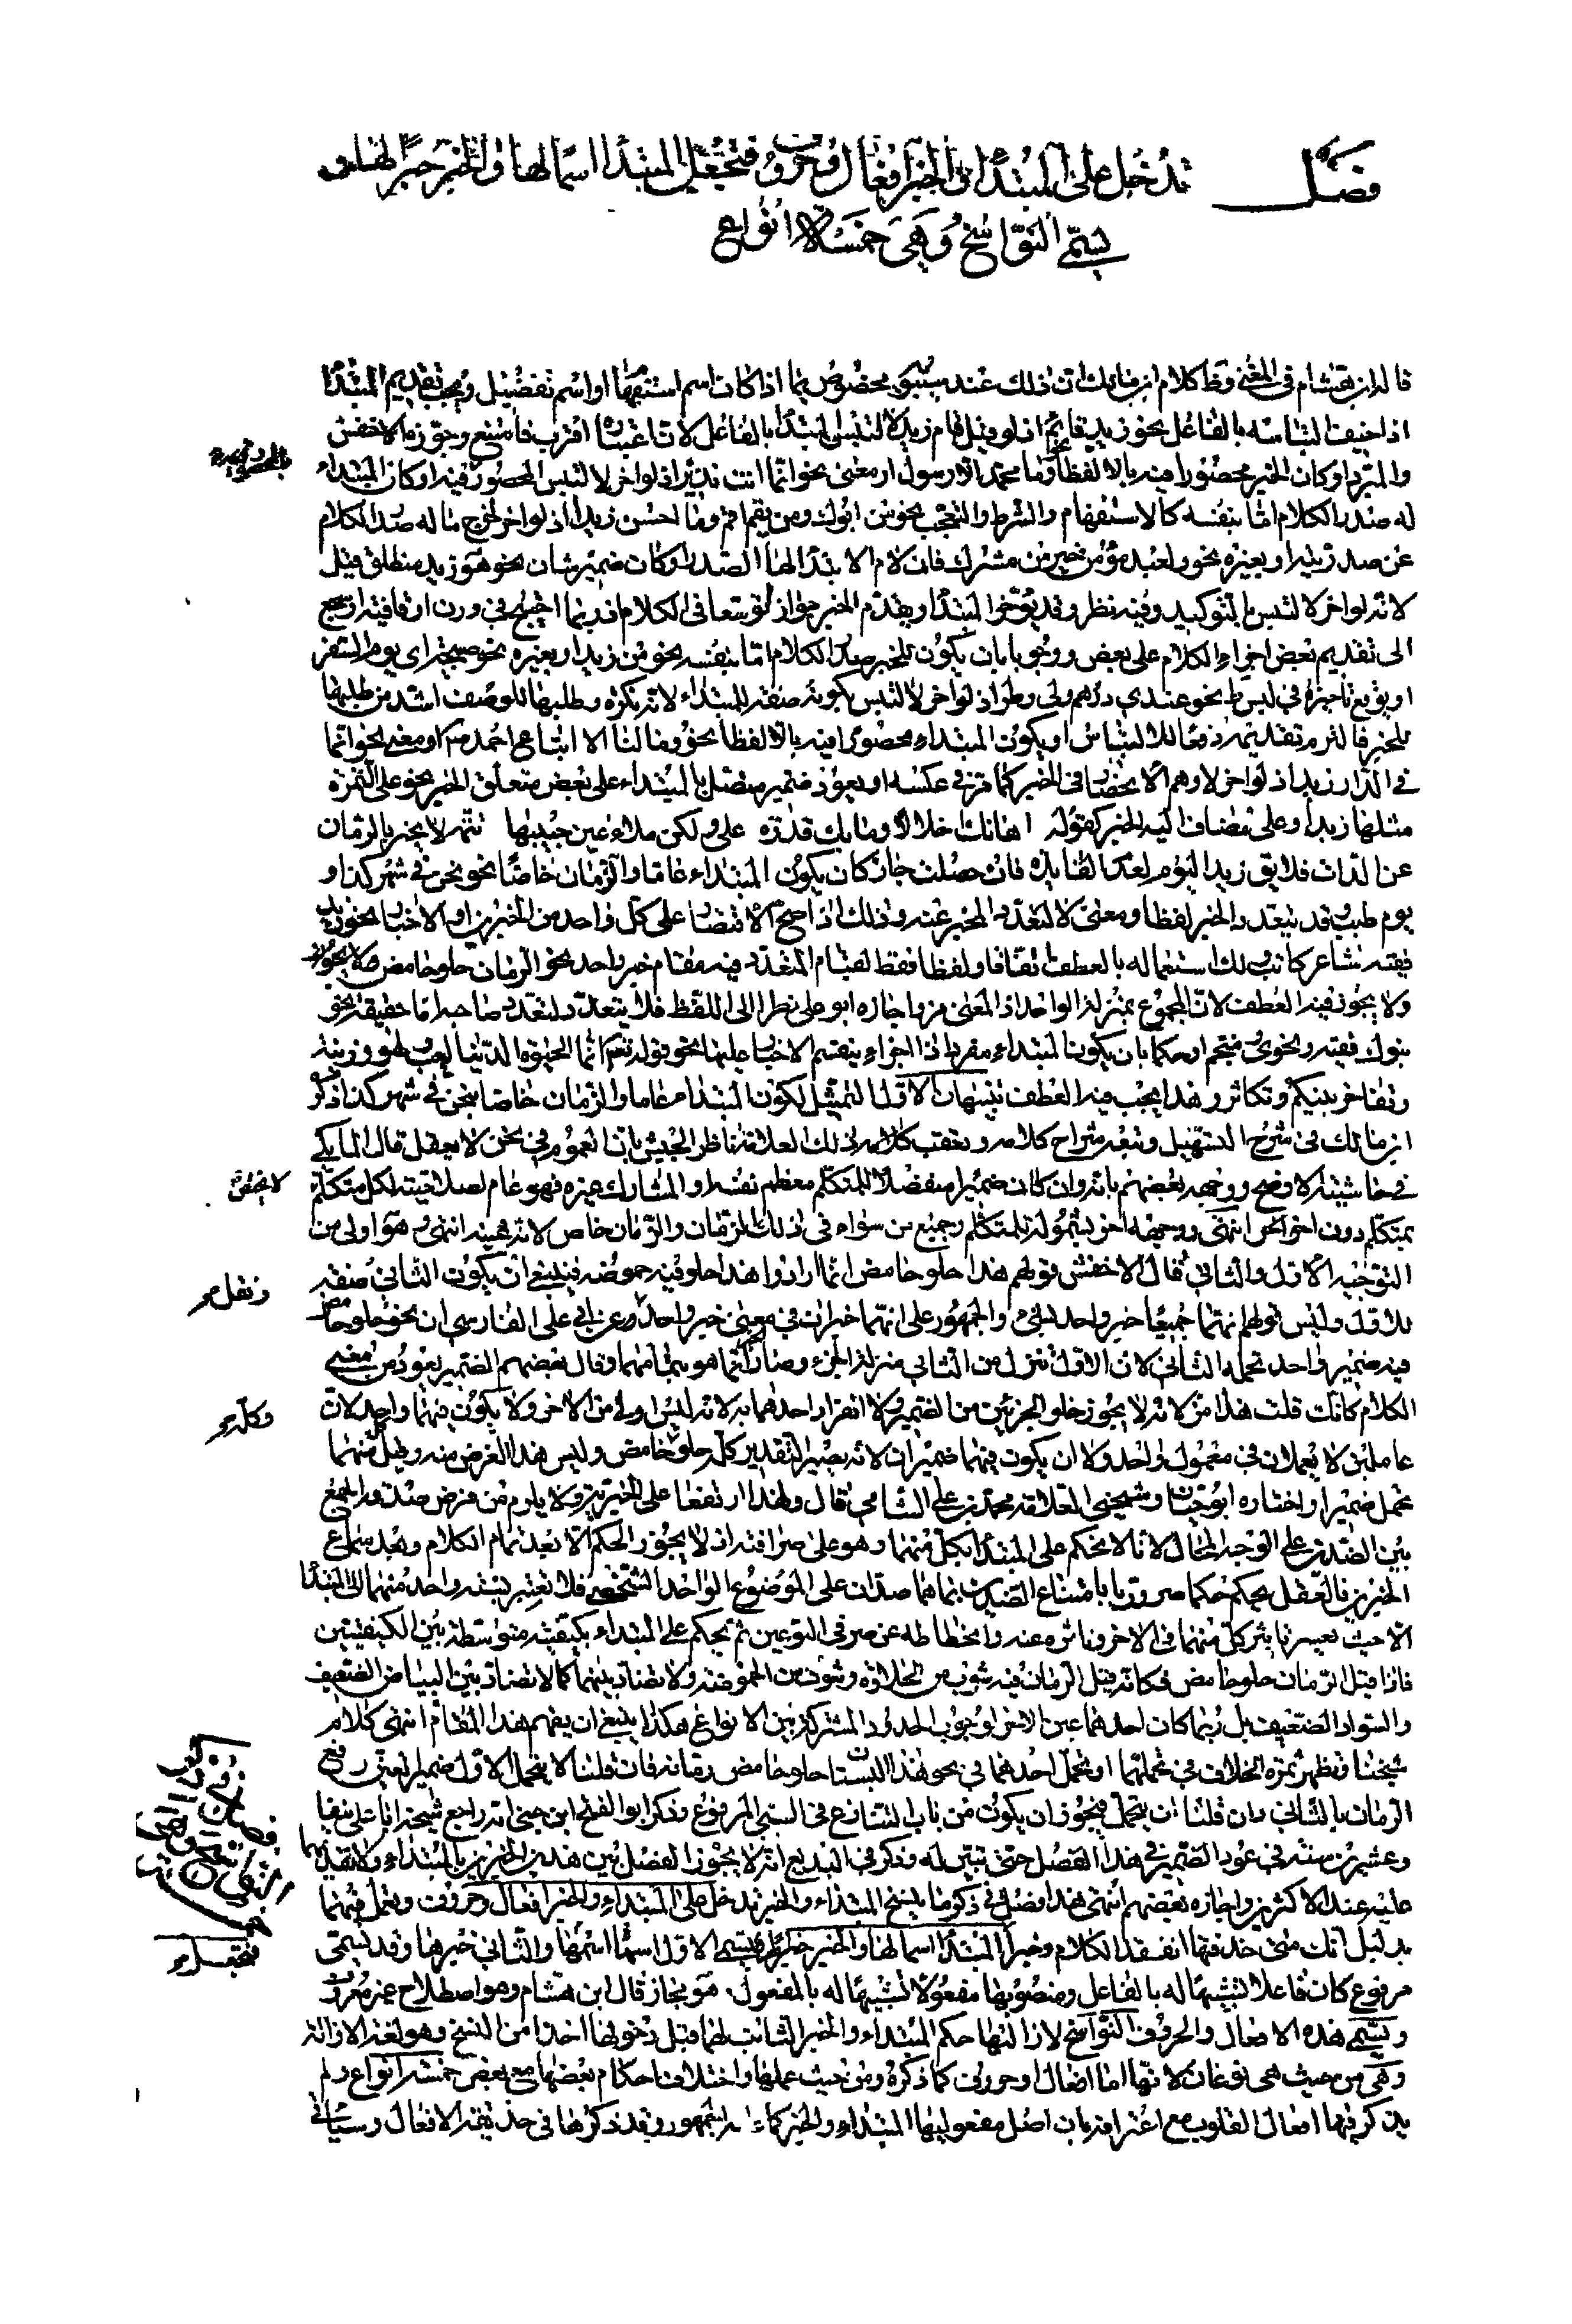 فصل تدخل على المبتدأ والخبر أفعال وحروف فتجعل المبتدأ اسما لها والخبر خبرا لها و
تسمى النواسخ وهي خمسة أنواع
قال ابن هشام في المغني وظ كلام ابن مالك ان ذلك عند سيبويه مخصوص بما اذا كان اسم استفهام او اسم تفضيل ويجب تقديم المبتدأ
اذا خيف التباسه بالفاعل نحو زيد قائم اذ لو قيل قام زيد لالتبس المبتدأ بالفاعل فامتنع وجوزه الاخفش
والمبرد او كان الخبر محصورا فيه بالا لفظا نحو وما محمد الا رسول او معنى نحو انما انت نذير اذ لو اخر لالتبس المحصور فيه او كان المبتداء
له صدر الكلام اما بنفسه كالاستفهام والشرط والتعجب نحو من ابوك ومن يقم اقم وما احسن زيدا اذ لو اخر لخرج ما له صدر الكلام
عن صدريته او بغيره نحو ولعبد مؤمن خير من مشرك فان لام الابتدا لها الصدر او كان ضمير شان نحو هو زيد منطلق قيل
لانه لو اخر لالتبس بالتوكيد وفيه نظر وقد يؤخر المبتدأ ويقدم الخبر جوازا توسعا في الكلام فربما احتيج في وزن او قافية او سجع
الى تقديم بعض اجزاء الكلام على بعض ووجوبا بان يكون للخبر صدر الكلام اما بنفسه نحو من زيد او بغيره نحو صبيحة اي يوم السفر
او يوقع تاخيره في لبس نحو عندي درهم ولي وطر اذ لو اخر لالتبس بكونه صفة للمبتداء لانه نكرة وطلبها للوصف اشد من طلبها
للخبر فالتزم تقديمه دفعا للالتباس او يكون المبتداء محصورا فيه بالا لفظا نحو وما لنا الا اتباع احمد او معنى نحو انما
في الدار زيد اذ لو اخر لاوهم الانحصار في الخبر كما مر في عكسه او يعود ضمير متصل بالمبتداء على بعض متعلق الخبر نحو على التمرة
مثلها زبدا وعلى مضاف اليه الخبر كقوله اهابك اجلالا وما بك قدرة علي ولكن ملاء عين حبيبها تتمه لا يخبر بالزمان
عن الذات فلا يق زيد اليوم لعدم الفايدة فان حصلت جاز كان يكون المبتداء عاما والزمان خاصا نحو نحن في شهر كذا و
يوم طيب قد يتعدد الخبر لفظا ومعنى لا لتعدد المخبر عنه وذلك اذا صح الاقتصار على كل واحد من الخبرين او الاخبار نحو زيد
فقيه شاعر كاتب ولك استعماله بالعطف اتفاقا ولفظا فقط لقيام المتعدد فيه مقام خبر واحد نحو الرمان حلو حامض
ولا يجوز فيه العطف لان المجموع بمنزلة الواحد اذ المعنى مز واجازه ابو علي نظرا الى اللفظ فلا يتعدد لتعدد صاحبه اما حقيقة نحو
بنوك فقيه ونحوي ومنجم او حكما بان يكون المبتداء مفردا ذا اجزاء ينقسم الاخبار عليها نحو قوله تعم انما الحيوة الدنيا لعب ولهو وزينة
وتفاخر بينكم وتكاثر وهذا يجب فيه العطف تنبيهات الاول التمثيل لكون المبتداء عاما والزمان خاصا بنحن في شهر كذا ذكره
ابن مالك في شرح التسهيل وتبعه شراح كلامه وتعقب كلامه في ذلك العلامة ناظر الجيش بان العموم في نحن لا يعقل قال المالكي
في حاشيته لا يخفى ووجهه بعضهم بانه وان كان ضميرا منفصلا للمتكلم معظم نفسه او المشارك غيره فهو عام لصلاحيته لكل متكلم
بمتكلم دون اخر انتهى ووجهه اخر بشموله للمتكلم وجميع من سواه في ذلك الزمان والزمان خاص لانه معين انتهى وهو اولى من
التوجيه الاول والثاني قال الاخفش قولهم هذا حلو حامض انما ارادوا هذا حلو فيه حموضة فينبغي ان يكون الثاني صفة
للاول وليس قولهم انهما جميعا خبر واحد بشيء والجمهور على انهما خبران في معنى خبر واحد وعن ابي علي الفارسي ان نحو حلو حامض
فيه ضمير واحد تحمله الثاني لان الاول تنزل من الثاني منزلة الجزء وصار الخبر انما هو بتمامهما وقال بعضهم الضمير يعود من معنى
الكلام كانك قلت هذا مز لانه لا يجوز خلو الجزئين من الضمير ولا انفراد احدهما به لانه ليس اولى من الاخر ولا يكون فيهما واحد لان
عاملين لا يعملان في معمول واحد ولا ان يكون فيهما ضميران لانه يصير التقدير كله حلو كله حامض وليس هذا الغرض منه وقيل كل منهما
تحمل ضميرا واختاره ابو حيان وشيخي العلامة محمد بن علي الشامي قال ولهذا ارتفعا على الخبرية ولا يلزم من فرض صدقه الجمع
بين الضدين على الوجه المحال لانا لا نحكم على المبتدأ بكل منهما وهو على صرافته اذ لا يجوز الحكم الا بعد تمام الكلام وبعد سماع
الخبرين فالعقل يحكم حكما ضروريا بامتناع الضدين بما هما صادقان على الموضوع الواحد الشخصي فلا تعتبر نسبة واحد منهما الى المبتدأ
الا حيث يعتبر تاثير كل منهما في الاخر وتاثره عنه وانحطاطه عن صرف النوعين ثم يحكم على المبتداء بكيفية متوسطة بين الكيفيتين
فاذا قيل الرمان حلو حامض فكانه قيل الرمان فيه شوب من الحلاوة وشوب من الحموضة ولا تضاد بينهما كما لا تضاد بين البياض الضعيف
والسواد الضعيف بل ربما كان احدهما عين الاخر لوجوب الحدود المشتركة بين الانواع هكذا ينبغي ان يفهم هذا المقام انتهى كلام
شيخنا وتظهر ثمرة الخلاف في تحملهما او تحمل احدهما في نحو هذا البستان حلو حامض رمانه فان قلنا لا يتحمل الاول ضميرا تعين رفع
الرمان بالثاني وان قلنا ان يتحمل فيجوز ان يكون من باب التنازع في السببي المرفوع وذكر ابو الفتح ابن جني انه راجع شيخه ابا علي نيفا
وعشرين سنة في عود الضمير في هذا الفصل حتى تبين له وذكر في البديع انه لا يجوز الفصل بين هذين الخبرين بالمبتداء ولا تقديمهما
عليه عند الاكثرين واجازه بعضهم انتهى هذا فصل في ذكر ما ينسخ المبتداء والخبر تدخل على المبتداء والخبر افعال وحروف وتعمل فيهما
بدليل انك متى حذفتها انعقد الكلام وخبرا المبتدأ اسما لها والخبر خبرا لها يسمى الاول اسما اسمها والثاني خبرها وقد يسمى
مرفوع كان فاعلا لتشبيها له بالفاعل ومنصوبها مفعولا تشبيها له بالمفعول هو مجاز قال ابن هشام وهو اصطلاح غير معروف
وتسمى هذه الافعال والحروف النواسخ لازالتها حكم المبتداء والخبر الثابت لهما قبل دخولها اخذا من النسخ وهو لغة الازالة
وهي من حيث هي نوعان لانها اما افعال او حروف كما ذكره ومن حيث عملها واختلاف احكام بعضها مع بعض خمسة انواع ولم
يذكر فيها افعال القلوب مع اعترافه بان اصل مفعوليها المبتداء والخبر كما الجمهور وقد ذكرها في حد بقية الافعال وسياتي
لا يخفى
ونقل
وكله
فصل في ذكر
فتجعل